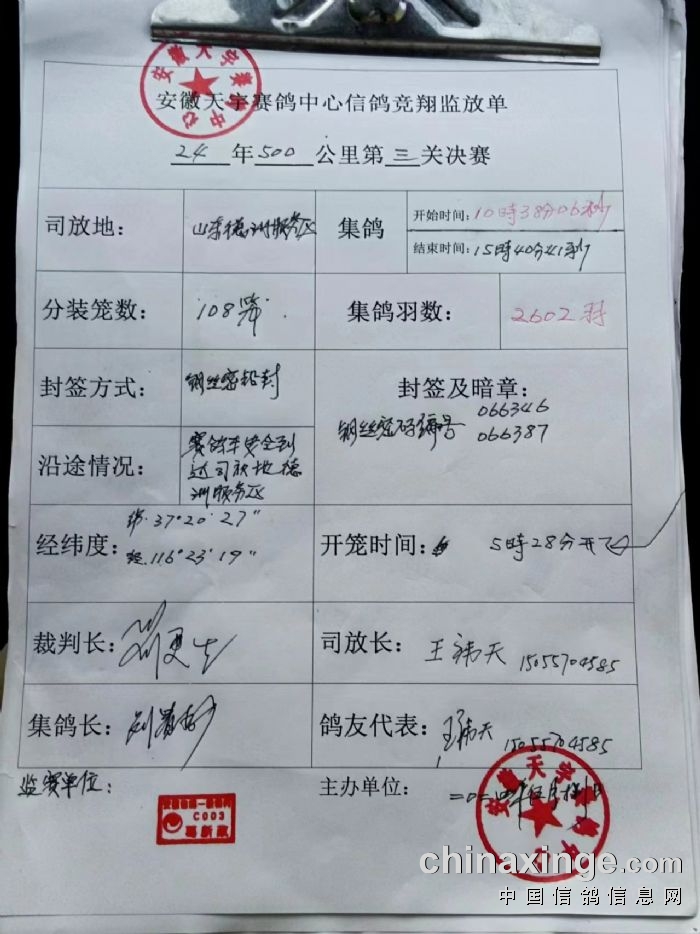 安徽天宇赛鸽中心信鸽竞翔监放单
24年500公里第三关决赛
司放地：
山东德洲服务区
集鸽
开始时间：10時38分06秒
结束时间：15時40分41秒
分装笼数：
108笼
集鸽羽数：
2602羽
封签方式：
钢丝密铅封
封签及暗章：
钢丝密码编号 066346
066387
沿途情况：
赛鸽车安全到
达司放地德
洲服务区
经纬度：
纬.37°20′27″
经.116°23′19″
开笼时间：
5時28分开
裁判长：
司放长：
王祎天 15055704585
集鸽长：
鸽友代表：
王祎天 15055704585
监赛单位：
主办单位：
安徽天宇赛鸽中心
安徽天宇赛鸽中心
C003
chinaxinge.com
中国信鸽信息网